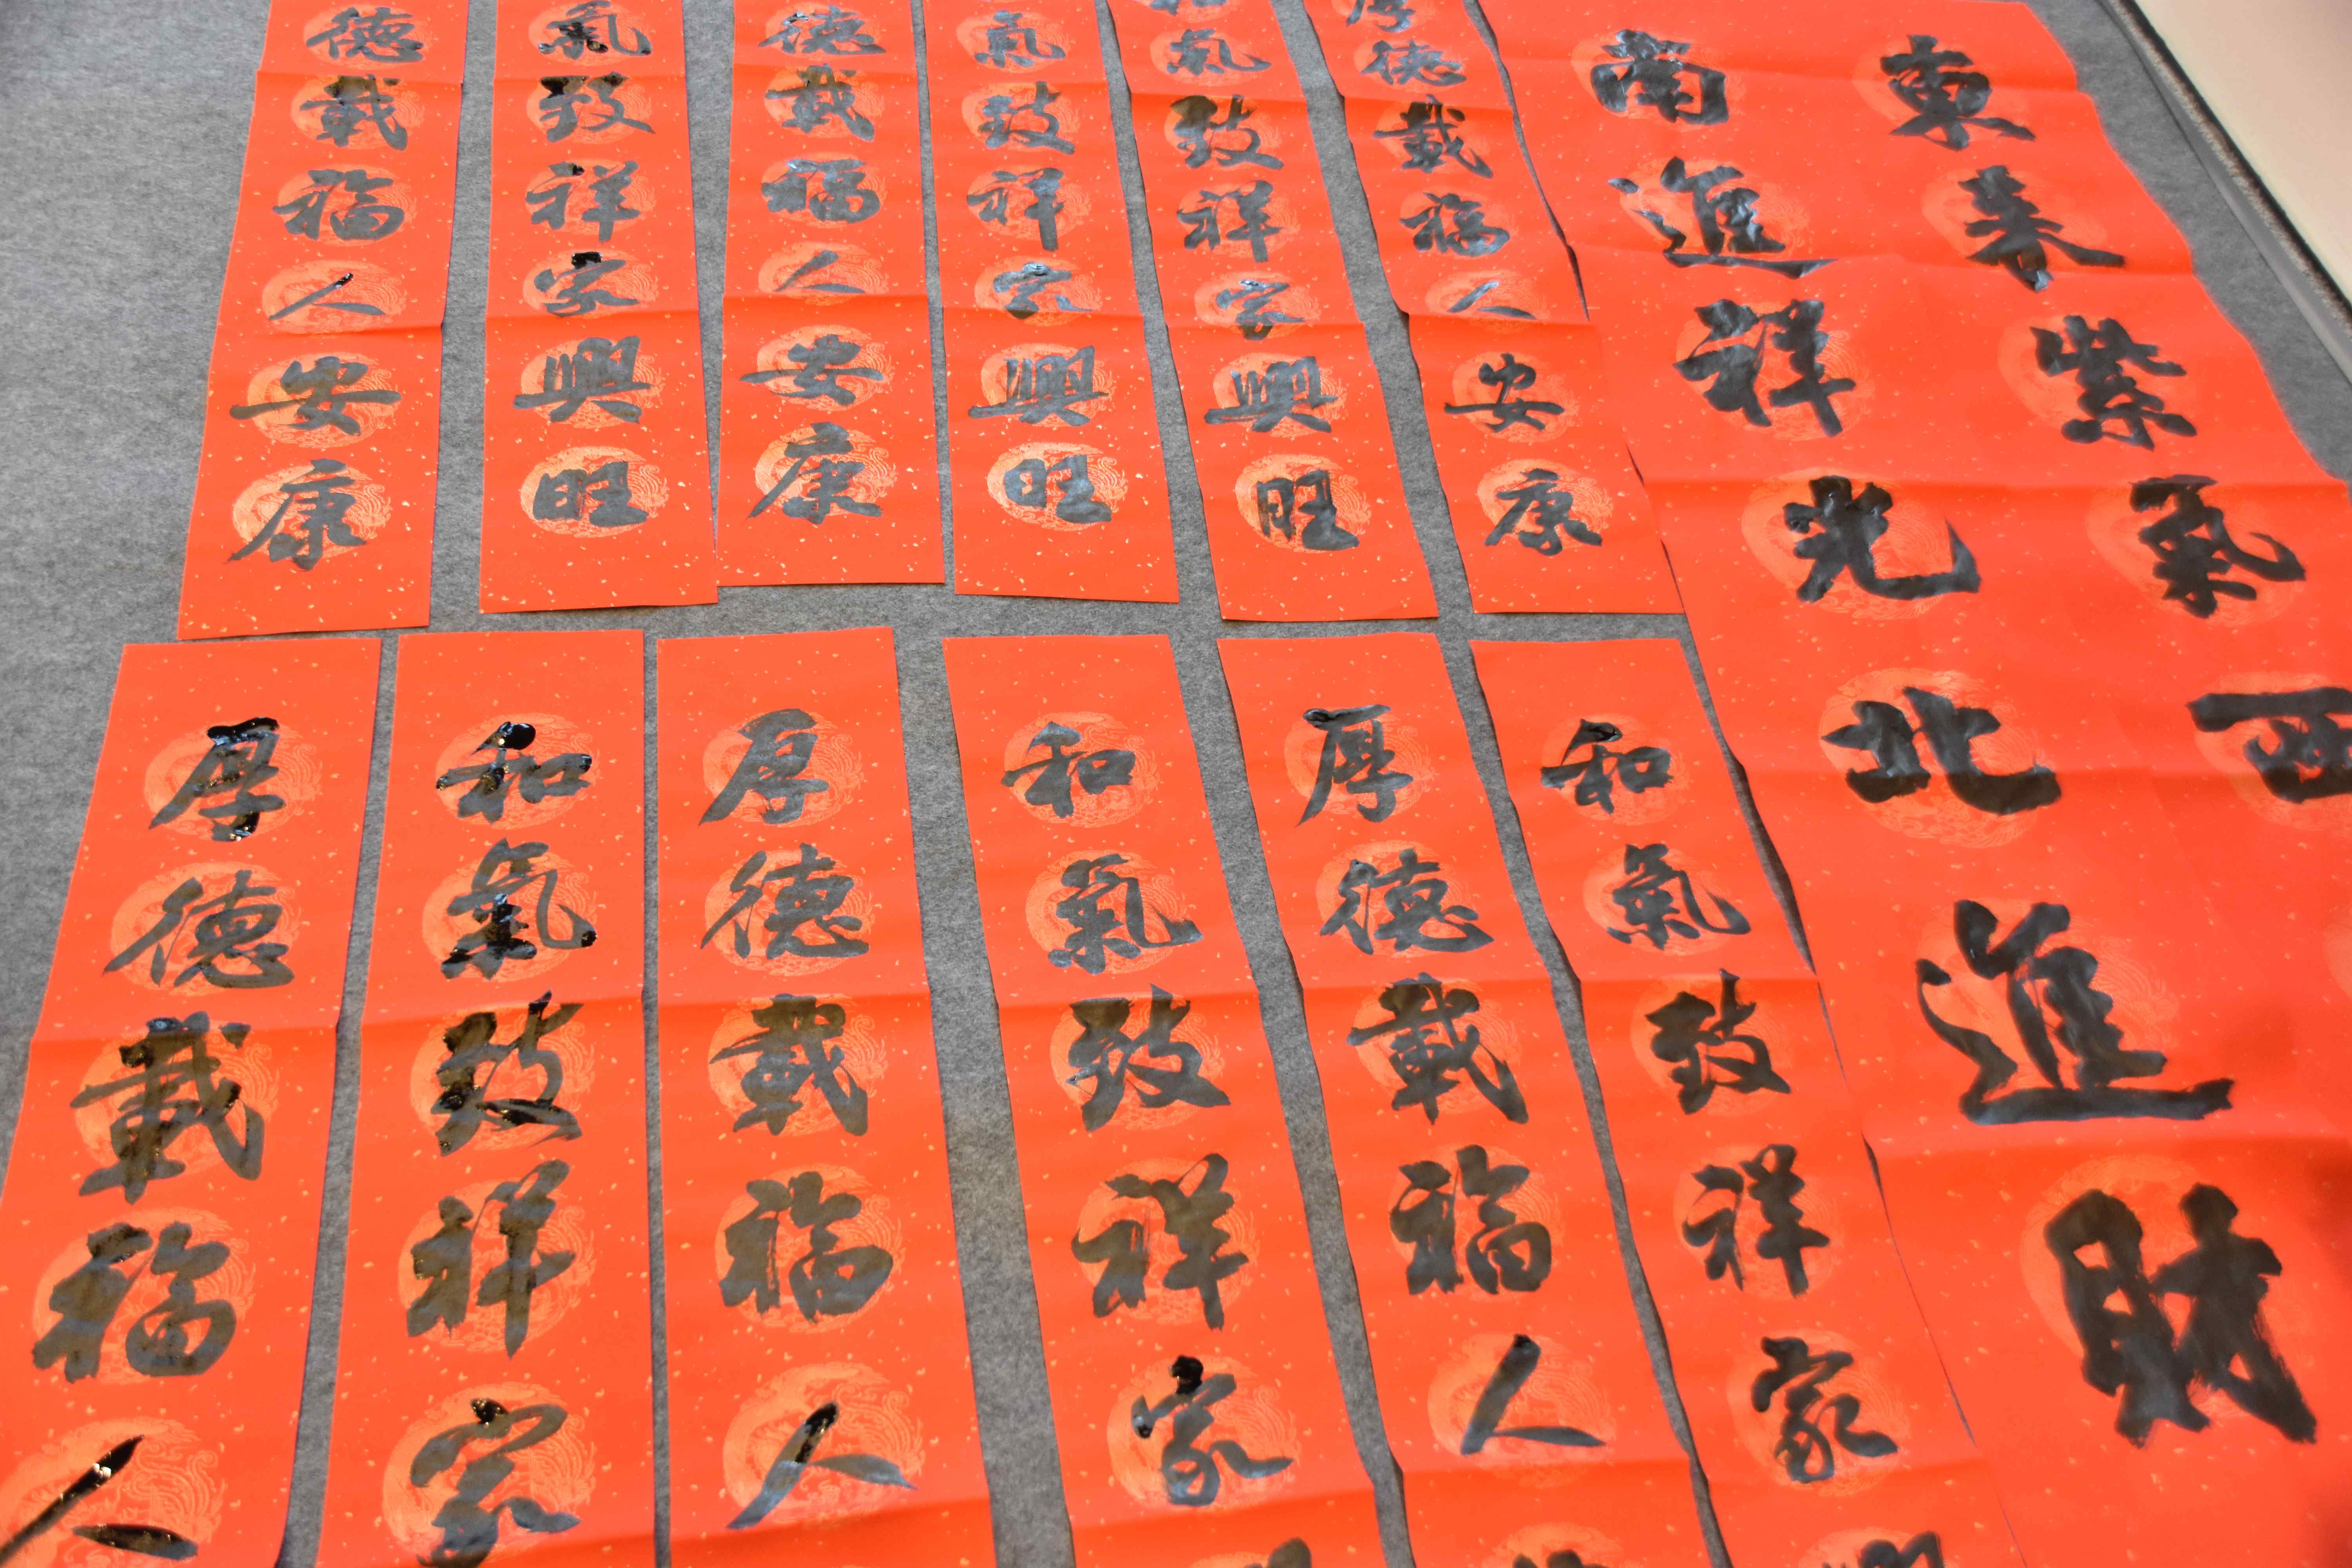 東奉紫氣西
南進祥光北進財
厚德載福人安康
和氣致祥家興旺
氣致祥家興旺
德載福人安康
氣致祥家興旺
德載福人安康
和氣致祥家興
厚德載福人
和氣致祥家
厚德載福人
和氣致祥家
厚德載福人